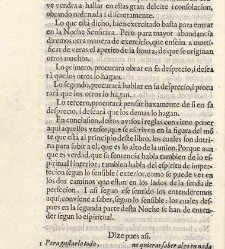 ve vendra a hallar en ellas gran deleite i consolacion,
obrando ordenada i discretamente.
Lo que està dicho, bien exercitado basta para entrar
en la Noche Sensitiva. Pero para mayor abundancia
diremos otra manera de exercicio, que enseña a mortificar
de veras el apetito de la
nos.
Lo primero, procurarà obrar en su desprecio, i deseará
que los otros lo hagan.
Lo segundo, procurarà hablar en su desprecio, i procurarà
que los otros lo hagan.
Lo tercero, procurarà pensar baxamente de si en su
desprecio, i deseará que los demas lo hagan.
En conclusion, destos avisos i reglas conviene poner
aqui aquellos versos, que se escriven en la figura del monte
que està al principio deste libro, los cuales son doctrina
para subir a el, que es lo alto de la union. Porque aunque
es verdad, que su sentencia habla tambien de lo espiritual
i interior; tambien habla del espiritu de imperfeccion
segun lo sensible i exterior, como se puede ver en
los dos caminos que estan en los lados de la senda de
perfeccion. I assi segun esse sentido los entenderemos
aqui; conviene a saber, segun lo sensible: los cuales despues
en la segunda parte desta Noche se han de entender
segun lo espiritual.
Dize pues assi.
1 Para gustarlo todo, no quieras saber algo en nada